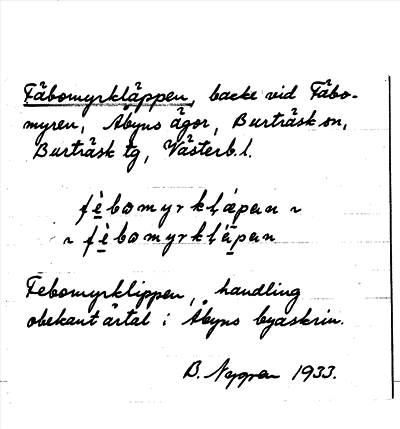 Fäbomyrkläppen, backe vid Fäbo-
myren, Åbyns ägor, Burträsk sn,
Burträsk tg, Västerb. l.
fèbomyrkląpen ~
~ fèbomyrklä̀pen
Febomyrklippen, handling
obekant årtal i Åbyns byaskrin.
B. Nygren 1933.